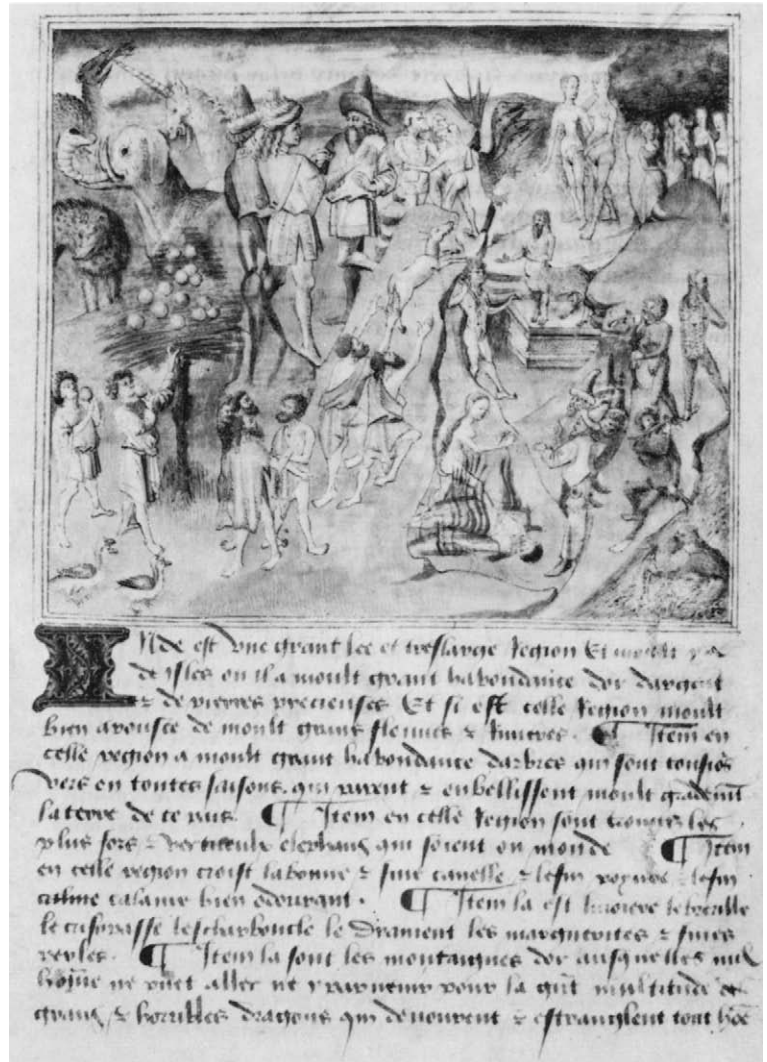 Inde est vne grant lee et treslarge Region Et moult y a
de isles ou il a moult grant habondance dor dargent
& de pierres precieuses Et si est celle Region moult
bien arousee de moult grans fleuues & Riuieres. ¶ Item en
celle region a moult grant habondance darbres qui sont tousiors
vers en toutes saisons. qui parent & enbellissent moult grademt
la terre de ce pais. ¶ Item en celle Region sont les
plus fors & elephans qui soient ou monde ¶ Item
en celle region croist la bonne & fine canelle & le fin &
calame bien odourant. ¶ Item la est
le lescharboucle le Dyament les marguerites & fines
perles. ¶ Item la sont les montaignes dor ausquelles nul
home ne puet aller ne pour la grāt multitude de
grans & horribles dragons qui deuourent & estranglent tout